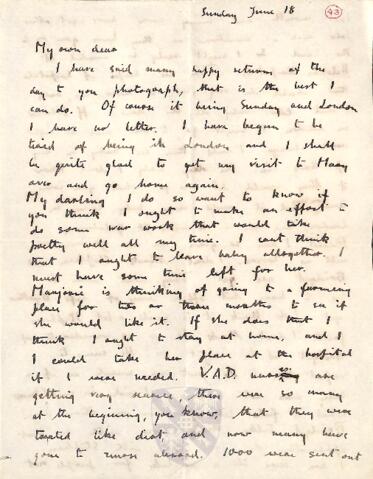 Sunday June 18
43
My own dear
I have said many happy returns of the
day to you photograph, that is the best I
can do. Of course it being Sunday and London
I have no letter. I have begun to be
tired of being in London and I shall
be quite glad to get my visit to Mary
over and go home again.
My darling I do so want to know if
you think I ought to make an effort to
do some war work that would take
pretty well all my time. I cant think
that I ought to leave baby altogether. I
must have some time left for her.
Marjorie is thinking of going to a farming
place for two or three months to see if
she would like it. If she does that I
think I ought to stay at home, and I
I could take her place at the hospital
if I were needed. V.A.D. nurses are
getting very scarce, there were so many
at the beginning, you know, that they were
treated like dirt, and now many have
gone to nurse abroad. 1000 were sent out